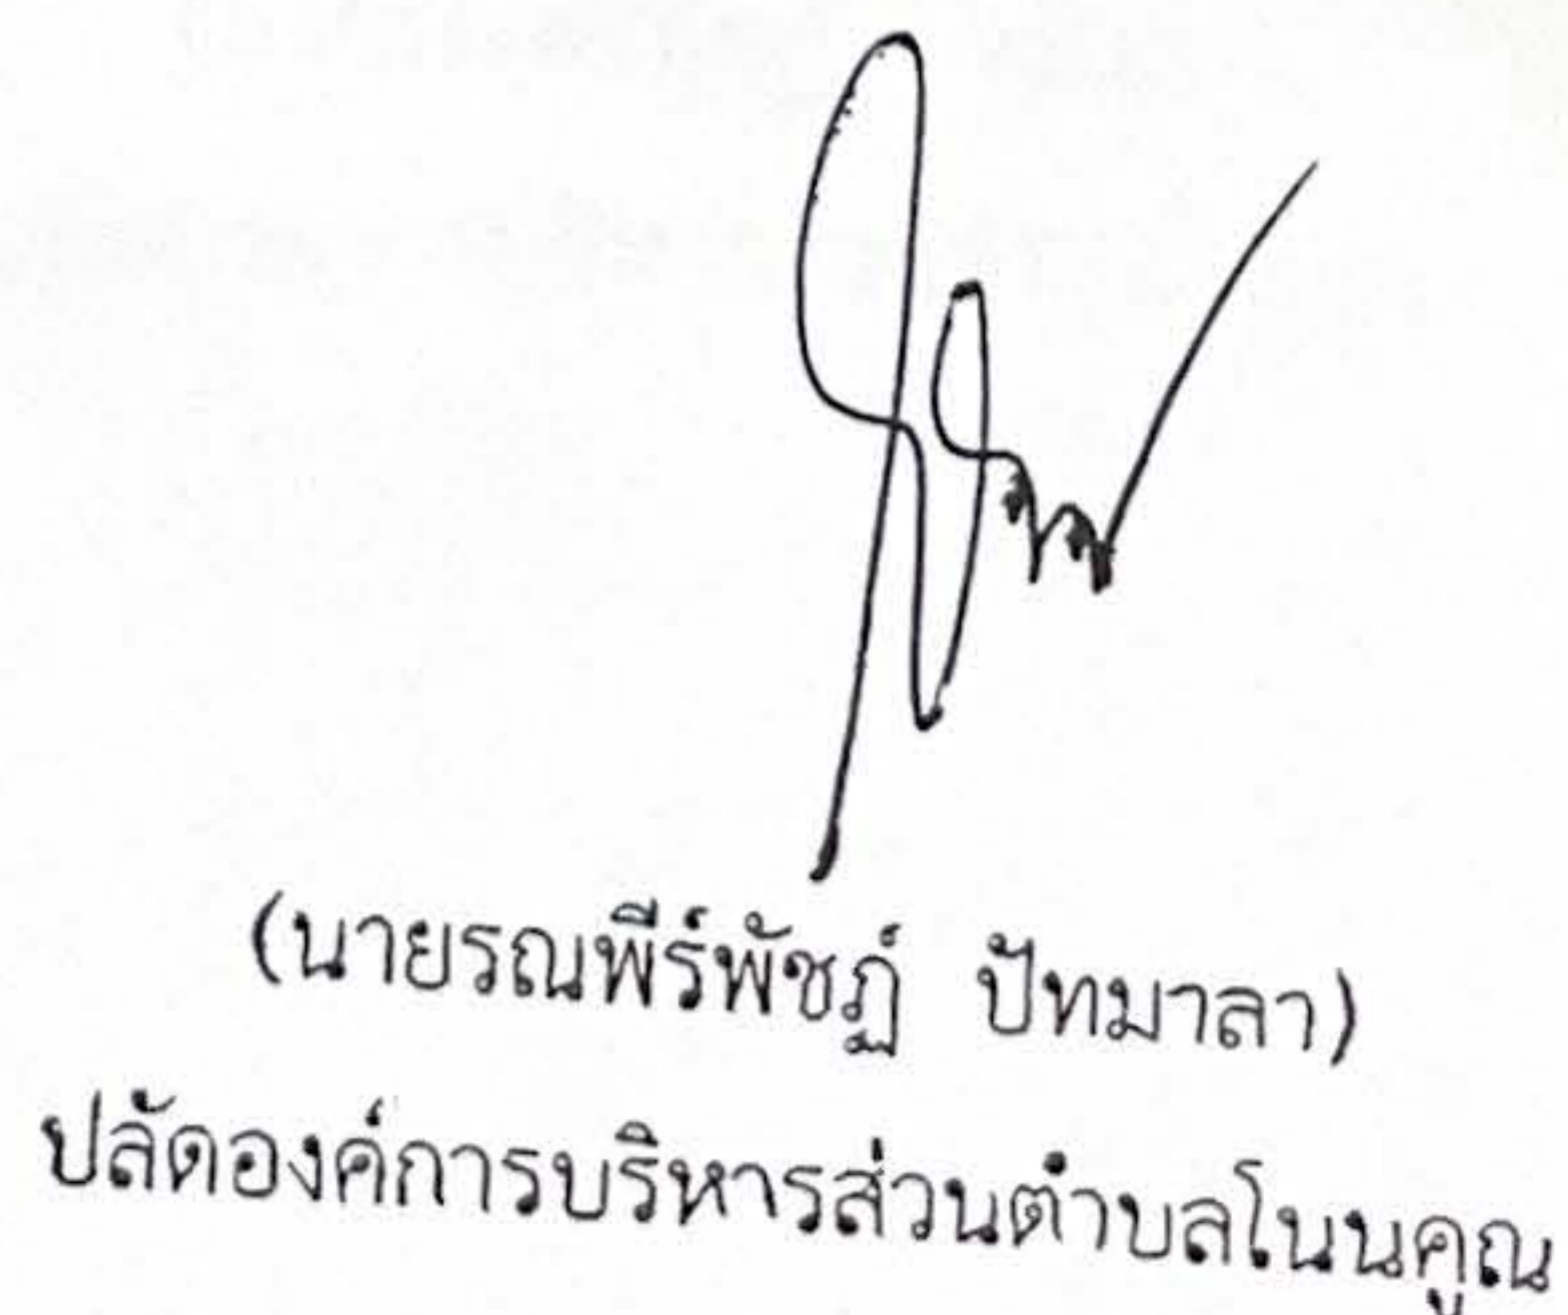 (นายรณพีร์พัชฏ์ ปัทมาลา)
ปลัดองค์การบริหารส่วนตำบลโนนคูณ